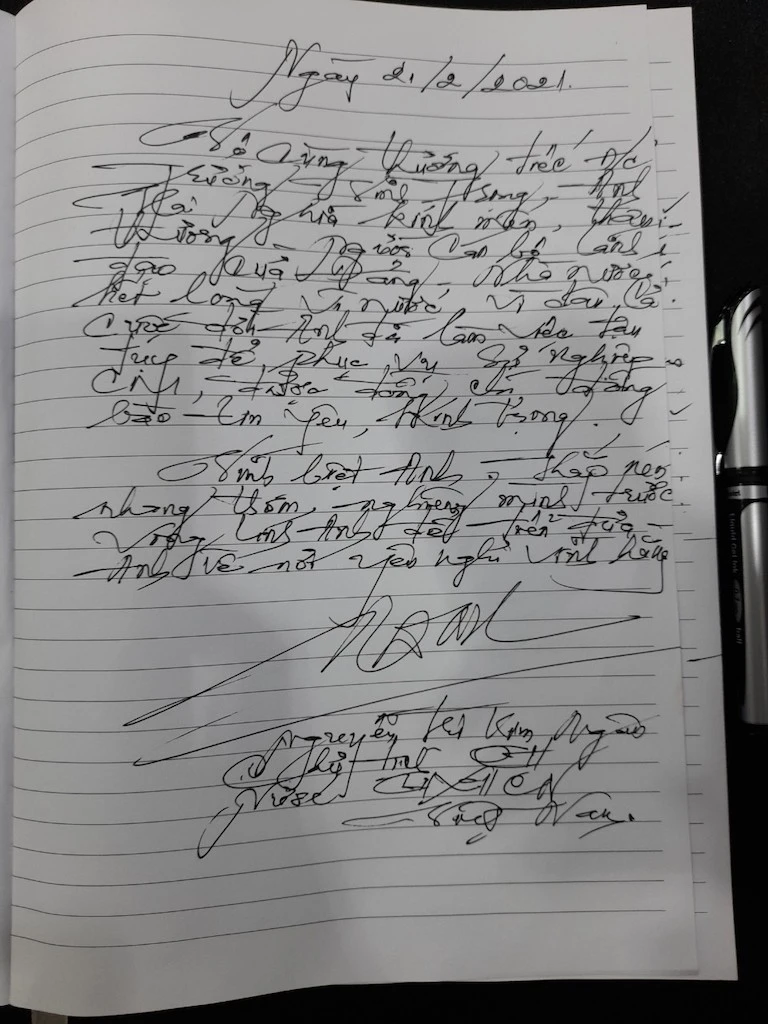 Ngày 21/2/2021.
Vô cùng thương tiếc đ/c
Trương Vĩnh Trọng, Anh
Hai Nghĩa kính mến, thân
thương - Người cán bộ lãnh
đạo của Đảng, Nhà nước
hết lòng vì nước vì dân, cả
cuộc đời Anh đã làm việc tận
tụy để phục vụ sự nghiệp
CM, được đồng chí đồng
bào tin yêu, kính trọng.
Vĩnh biệt Anh, thắp nén
nhang thơm, nghiêng mình trước
vong linh Anh để tiễn đưa
Anh về nơi yên nghỉ vĩnh hằng
Ngân
Nguyễn Thị Kim Ngân
Chủ tịch QH
Nước CHXHCN
Việt Nam.